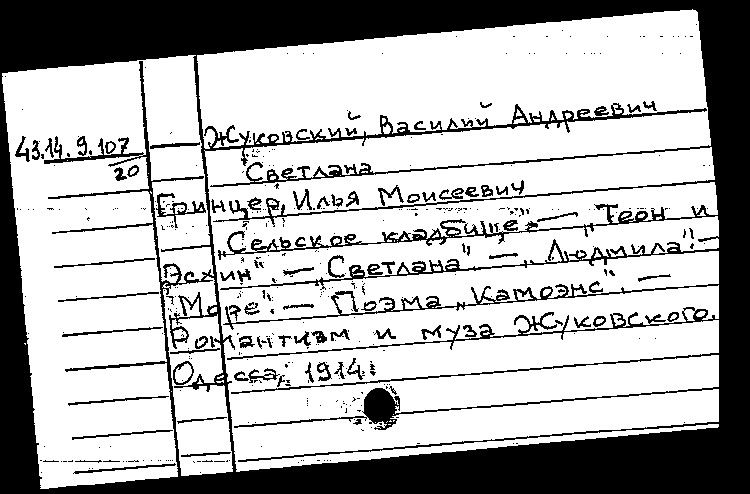 43.14.9.107
20
Жуковский, Василий Андреевич
Светлана
Гринцер, Илья Моисеевич
„Сельское кладбище“. — „Теон и
Эсхин“. — „Светлана“. — „Людмила“. —
„Море“. — Поэма „Камоэнс“. —
Романтизм и муза Жуковского.
Одесса, 1914.